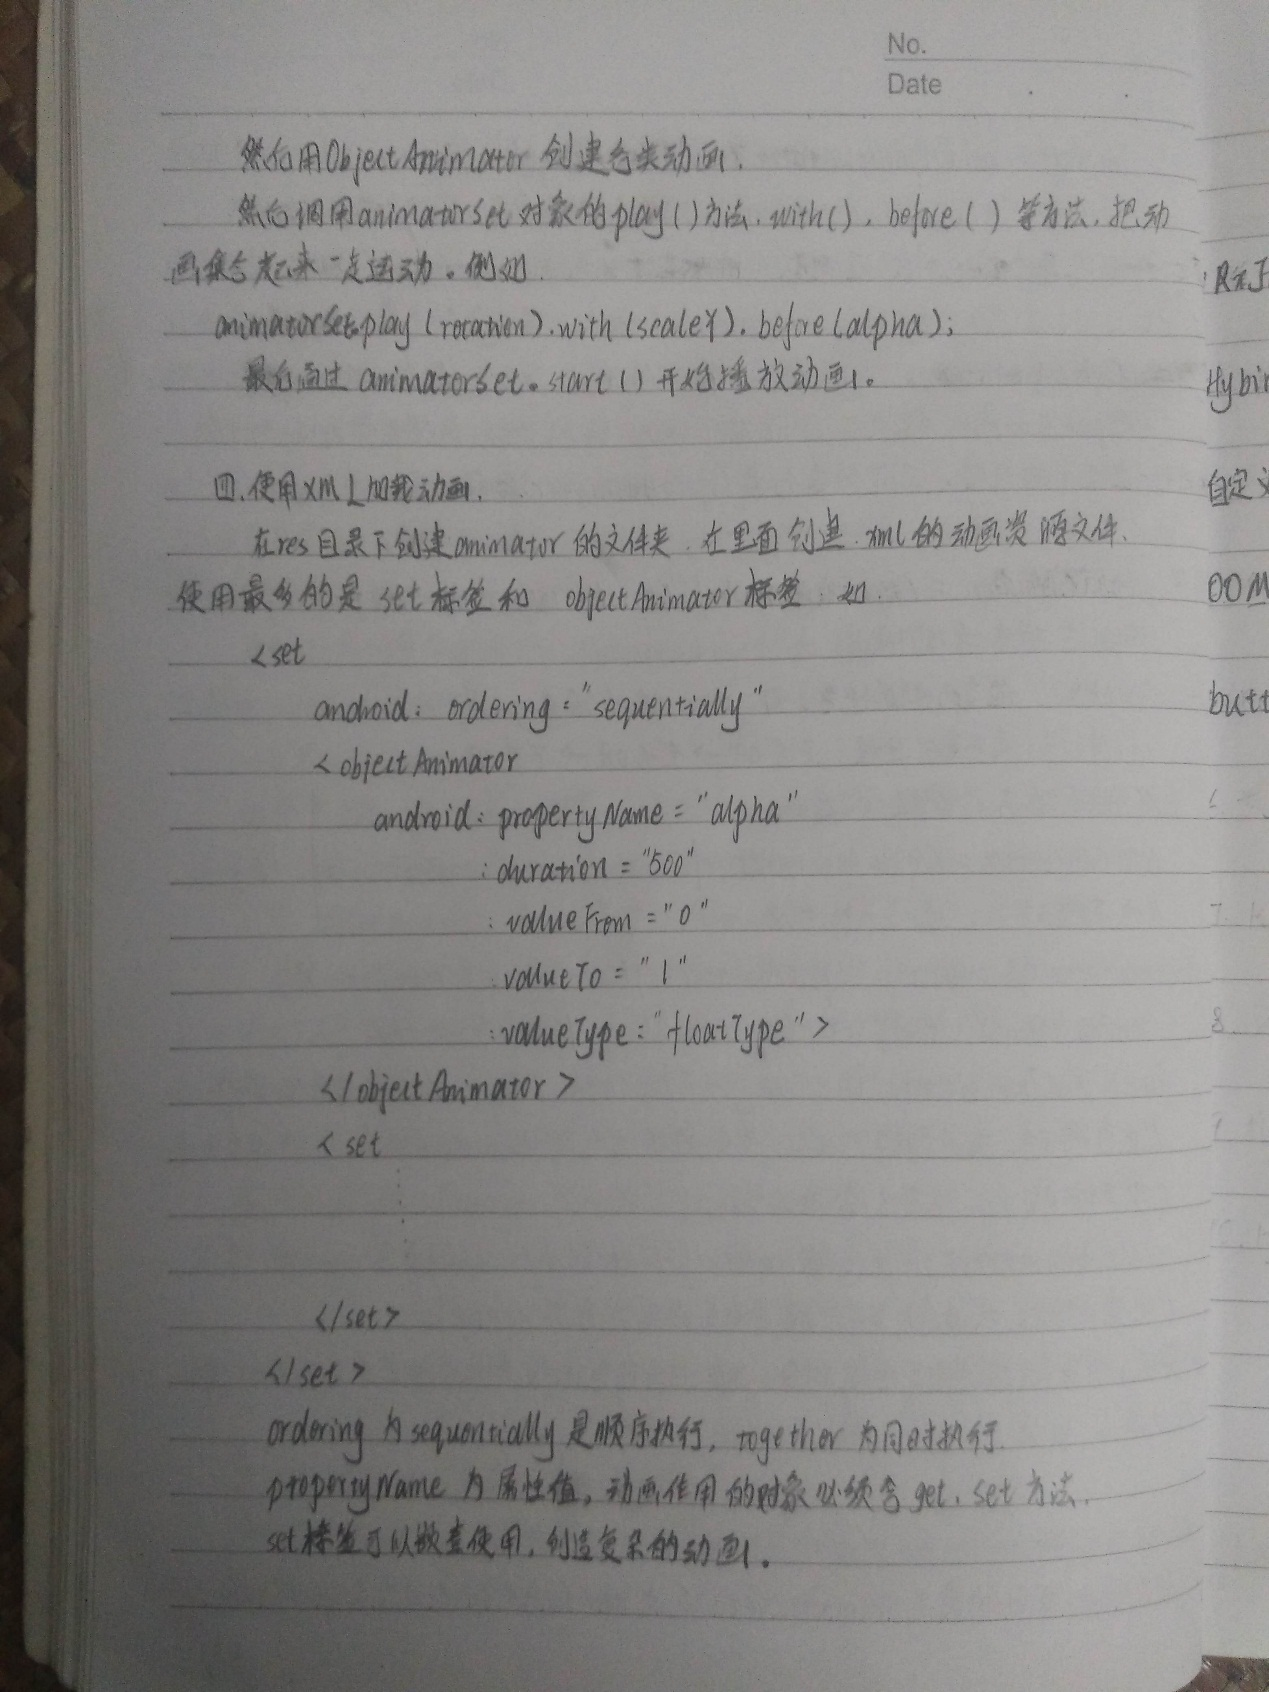 No.
Date
然后用ObjectAnimator 创建各类动画.
然后调用animatorSet对象的play()方法. with(). before() 等方法. 把动
画集合起来一起运动。例如.
animatorSet.play (rotation).with (scaleY). before (alpha);
最后通过 animatorSet. start () 开始播放动画。
四. 使用XML加载动画.
在res目录下创建animator的文件夹. 在里面创建.xml的动画资源文件.
使用最多的是 set标签和 objectAnimator标签. 如.
<set
android: ordering = "sequentially"
<objectAnimator
android: propertyName = "alpha"
: duration = "500"
: valueFrom = "0"
: valueTo = "1"
: valueType = "floatType" >
</objectAnimator >
<set
</set>
</set >
ordering 为 sequentially 是顺序执行, together 为同时执行.
propertyName 为属性值, 动画作用的对象必须含 get. set 方法.
set标签可以嵌套使用, 创造复杂的动画。
自定义
OOM
butt